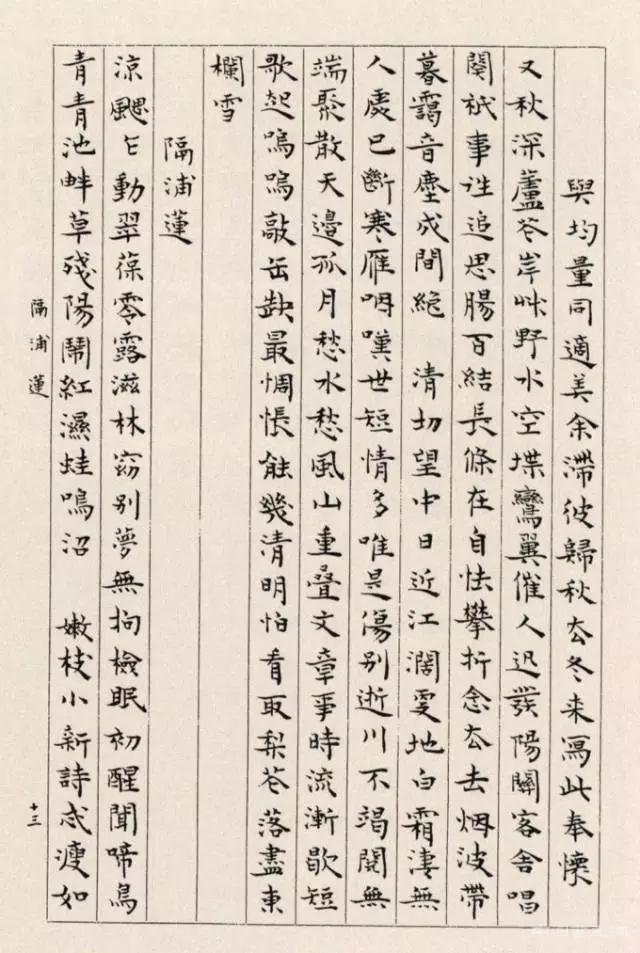 與均量同適美余滯彼歸秋厺冬来寫此奉懷
又秋深蘆苍岸艸野水空堞鸞翼催人迟發陽關客舍唱
闋祇事迬追思腸百結長條在自怯攀折念厺去烟波帶
暮靄音塵成間絶 清切望中日近江濶雯地白霜淒無
人處已斷寒雁咽嘆世短情多唯是傷別逝川不竭閱無
端聚散天邊孤月愁水愁風山重疊文章事時流漸歇短
歌起嗚嗚敲缶缺最惆悵能幾清明怕看取梨苍落盡東
欄雪
隔浦蓮
涼颸乍動翠葆零露滋林窈别夢無拘檢眠初醒聞啼鳥
青青池畔草殘陽鬧紅濕蛙鳴沼 嫩枝小新詩忒瘦如
隔浦蓮
十三